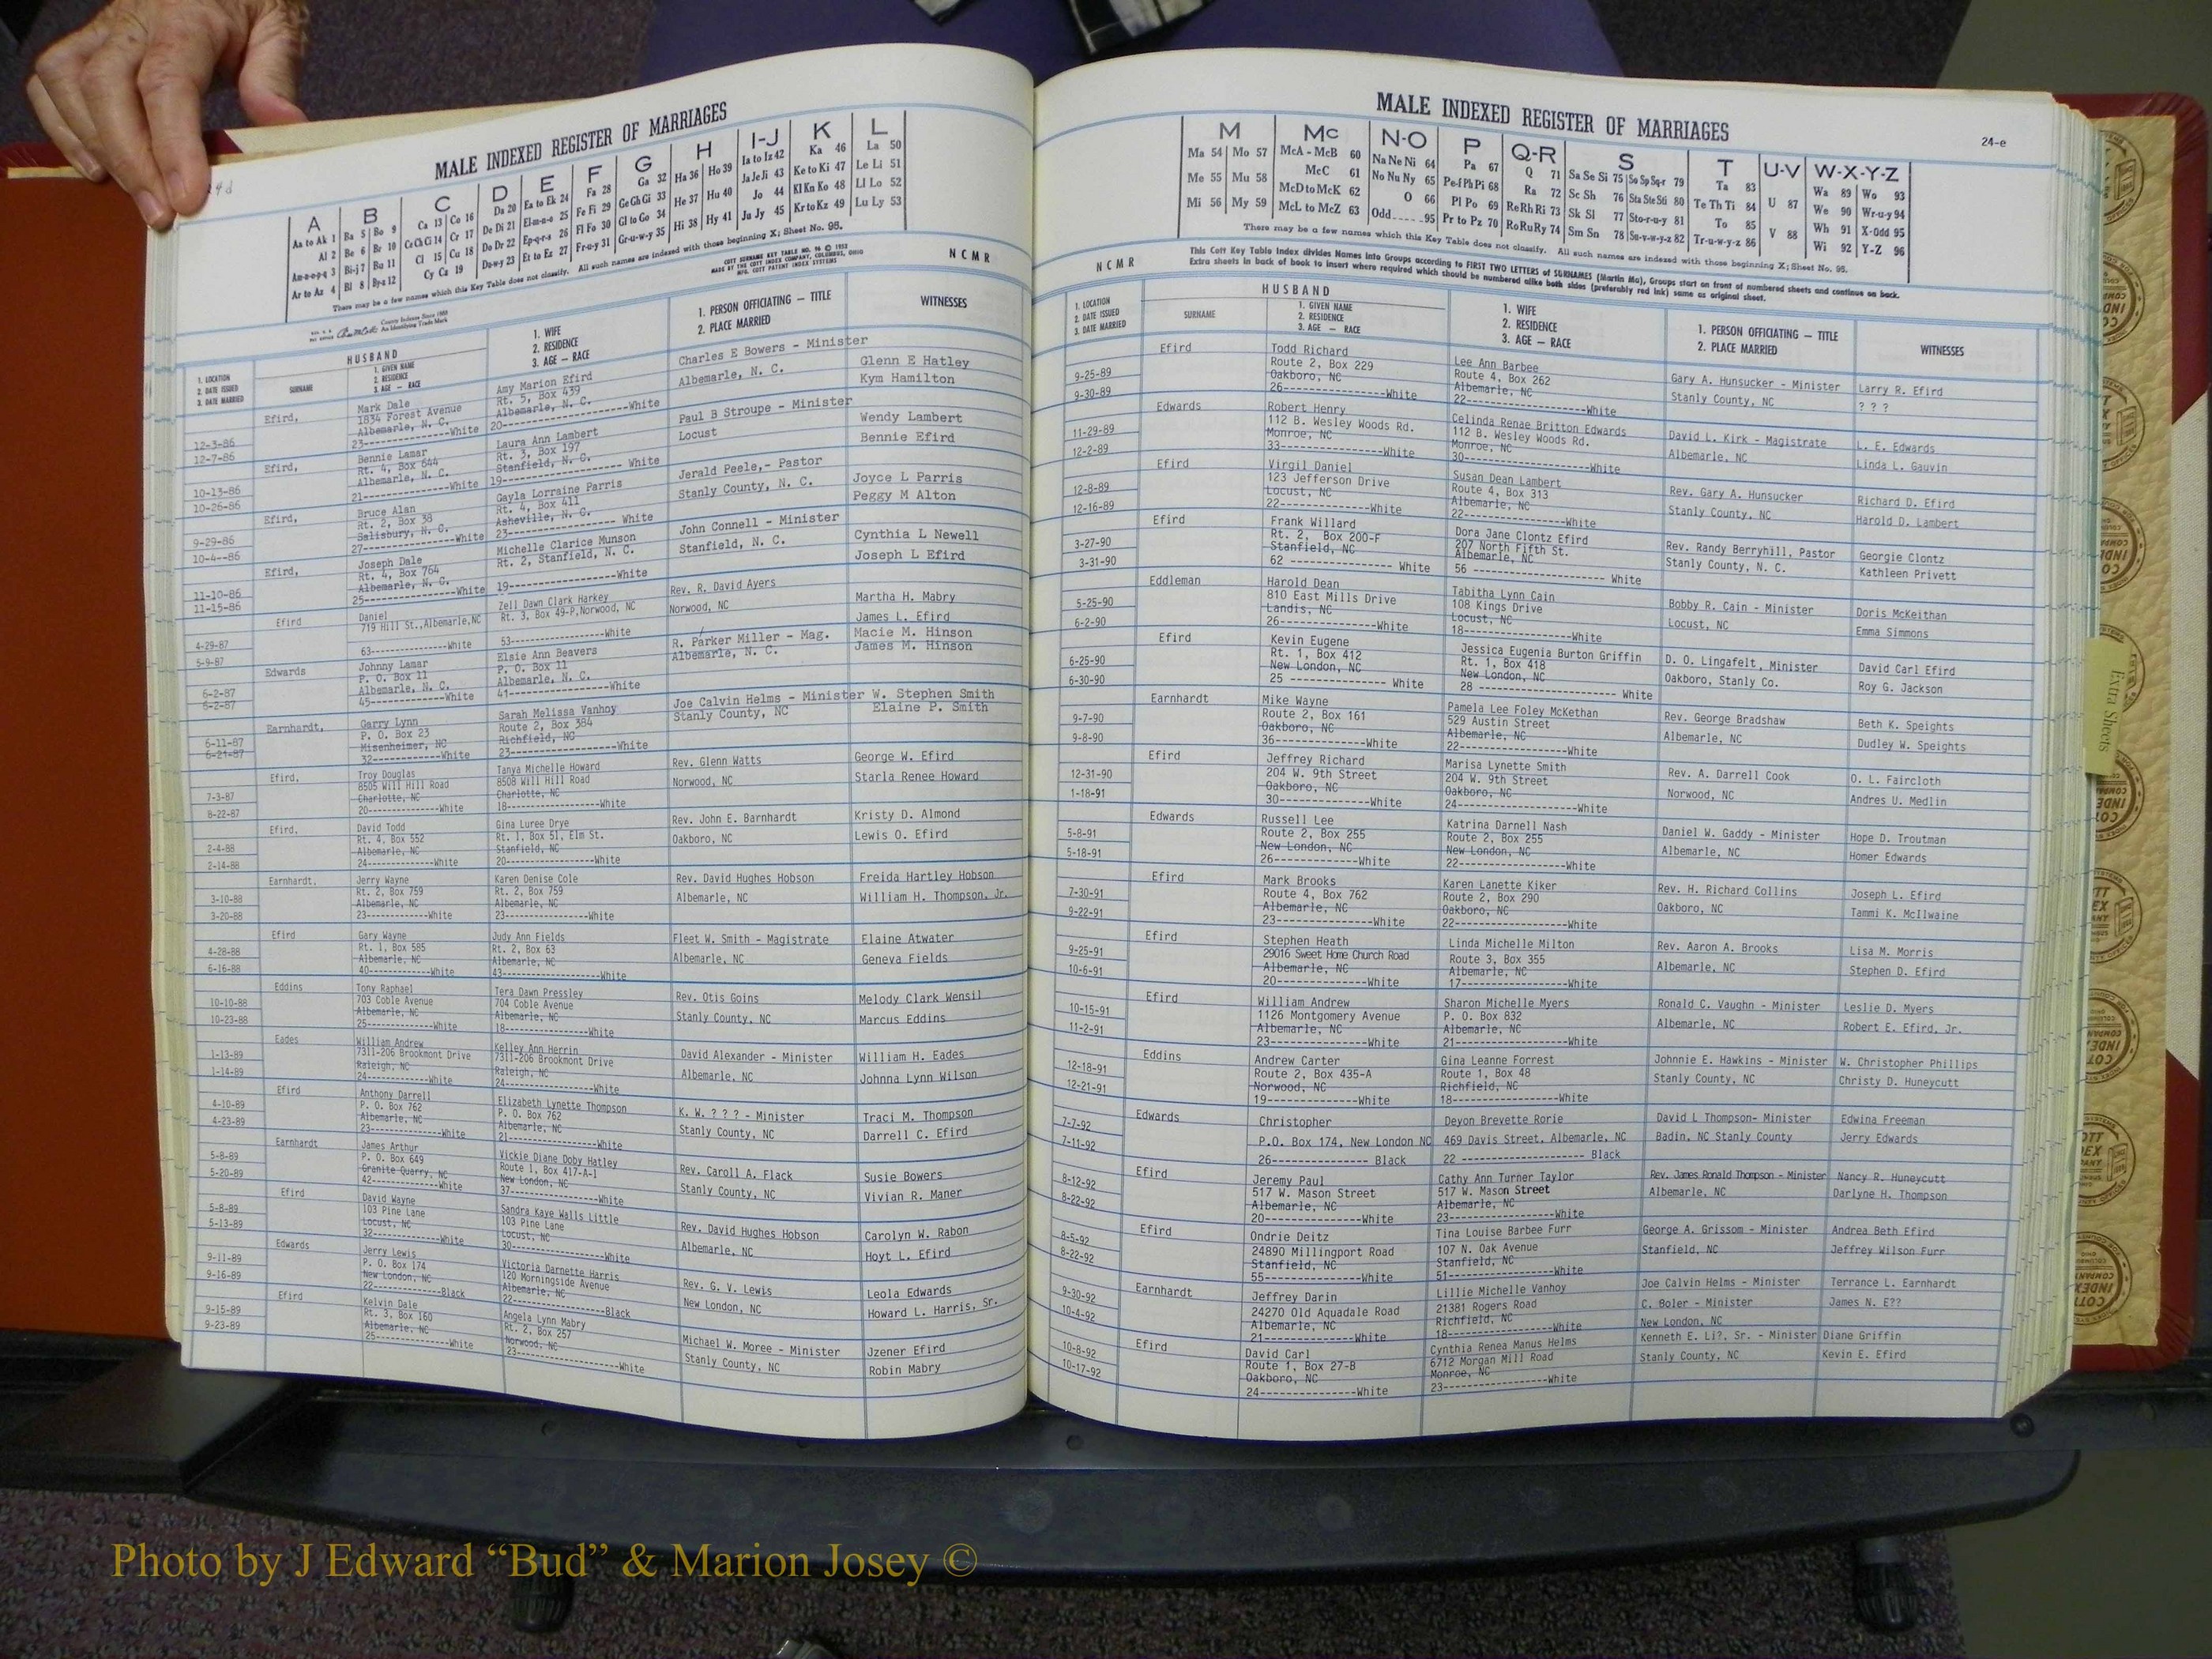 MALE INDEXED REGISTER OF MARRIAGES
A B C D E F G H I-J K L
Aa to Ak 1 Ba 5 Bo 9 Ca 13 Co 16 Da 20 Ea to Ek 24 Fa 28 Ga 32 Ha 36 Ho 39 Ia to Iz 42 Ka 46 La 50
Al 2 Be 6 Br 10 Ce Ch Ci 14 Cr 17 De Di 21 Elm-n-o 25 Fe Fi 29 Ge Gh Gi 33 He 37 Hu 40 Ja Je Ji 43 Ke to Ki 47 Le Li 51
Am-n-o-p-q 3 Bi-j 7 Bu 11 Cl 15 Cu 18 Do Dr 22 Ep-q-r-s 26 Fl Fo 30 Gl to Go 34 Hi 38 Hy 41 Jo 44 Kl Kn Ko 48 Ll Lo 52
Ar to Az 4 Bl 8 By-a 12 Cy Cz 19 Du-w-y 23 Et to Ez 27 Fr-u-y 31 Gr-u-w-y 35 Ju Jy 45 Kr to Kz 49 Lu Ly 53
There may be a few names which this Key Table does not classify. All such names are indexed with those beginning X; Sheet No. 95.
COTT SURNAME KEY TABLE NO. 96 © 1952
MADE BY THE COTT INDEX COMPANY, COLUMBUS, OHIO
MFG. COTT PATENT INDEX SYSTEMS
NCMR
County Indexes Since 1888
An Identifying Trade Mark
1. LOCATION
2. DATE ISSUED
3. DATE MARRIED
HUSBAND
SURNAME
1. GIVEN NAME
2. RESIDENCE
3. AGE — RACE
1. WIFE
2. RESIDENCE
3. AGE — RACE
1. PERSON OFFICIATING — TITLE
2. PLACE MARRIED
WITNESSES
12-3-86
12-7-86
Efird,
Mark Dale
1834 Forest Avenue
Albemarle, N. C.
23--------------White
Amy Marion Efird
Rt. 5, Box 439
Albemarle, N. C.
20--------------White
Charles E Bowers - Minister
Albemarle, N. C.
Glenn E Hatley
Kym Hamilton
10-13-86
10-26-86
Efird,
Bennie Lamar
Rt. 4, Box 644
Albemarle, N. C.
21--------------White
Laura Ann Lambert
Rt. 3, Box 197
Stanfield, N. C.
19--------------White
Paul B Stroupe - Minister
Locust
Wendy Lambert
Bennie Efird
9-29-86
10-4--86
Efird,
Bruce Alan
Rt. 2, Box 38
Salisbury, N. C.
27--------------White
Gayla Lorraine Parris
Rt. 4, Box 411
Asheville, N. C.
23-------------- White
Jerald Peele,- Pastor
Stanly County, N. C.
Joyce L Parris
Peggy M Alton
11-10-86
11-15-86
Efird,
Joseph Dale
Rt. 4, Box 764
Albemarle, N. C.
25--------------White
Michelle Clarice Munson
Rt. 2, Stanfield, N. C.
19--------------White
John Connell - Minister
Stanfield, N. C.
Cynthia L Newell
Joseph L Efird
4-29-87
5-9-87
Efird
Daniel
719 Hill St.,Albemarle,NC
63--------------White
Zell Dawn Clark Harkey
Rt. 3, Box 49-P,Norwood, NC
53--------------White
Rev. R. David Ayers
Norwood, NC
Martha H. Mabry
James L. Efird
6-2-87
6-2-87
Edwards
Johnny Lamar
P. O. Box 11
Albemarle, N. C.
45--------------White
Elsie Ann Beavers
P. O. Box 11
Albemarle, N. C.
41--------------White
R. Parker Miller - Mag.
Albemarle, N. C.
Macie M. Hinson
James M. Hinson
6-11-87
6-21-87
Earnhardt,
Garry Lynn
P. O. Box 23
Misenheimer, NC
32--------------White
Sarah Melissa Vanhoy
Route 2, Box 384
Richfield, NC
23--------------White
Joe Calvin Helms - Minister
Stanly County, NC
W. Stephen Smith
Elaine P. Smith
7-3-87
8-22-87
Efird,
Troy Douglas
8505 Will Hill Road
Charlotte, NC
20--------------White
Tanya Michelle Howard
8508 Will Hill Road
Charlotte, NC
18--------------White
Rev. Glenn Watts
Norwood, NC
George W. Efird
Starla Renee Howard
2-4-88
2-14-88
Efird,
David Todd
Rt. 4, Box 552
Albemarle, NC
24--------------White
Gina Luree Drye
Rt. 1, Box 51, Elm St.
Stanfield, NC
20--------------White
Rev. John E. Barnhardt
Oakboro, NC
Kristy D. Almond
Lewis O. Efird
3-10-88
3-20-88
Earnhardt,
Jerry Wayne
Rt. 2, Box 759
Albemarle, NC
23--------------White
Karen Denise Cole
Rt. 2, Box 759
Albemarle, NC
23--------------White
Rev. David Hughes Hobson
Albemarle, NC
Freida Hartley Hobson
William H. Thompson, Jr.
4-28-88
6-16-88
Efird
Gary Wayne
Rt. 1, Box 585
Albemarle, NC
40--------------White
Judy Ann Fields
Rt. 2, Box 63
Albemarle, NC
43--------------White
Fleet W. Smith - Magistrate
Albemarle, NC
Elaine Atwater
Geneva Fields
10-10-88
10-23-88
Eddins
Tony Raphael
703 Coble Avenue
Albemarle, NC
25--------------White
Tera Dawn Pressley
704 Coble Avenue
Albemarle, NC
18--------------White
Rev. Otis Goins
Stanly County, NC
Melody Clark Wensil
Marcus Eddins
1-13-89
1-14-89
Eades
William Andrew
7311-206 Brookmont Drive
Raleigh, NC
24--------------White
Kelley Ann Herrin
7311-206 Brookmont Drive
Raleigh, NC
24--------------White
David Alexander - Minister
Albemarle, NC
William H. Eades
Johnna Lynn Wilson
4-10-89
4-23-89
Efird
Anthony Darrell
P. O. Box 762
Albemarle, NC
23--------------White
Elizabeth Lynette Thompson
P. O. Box 762
Albemarle, NC
21--------------White
K. W. ? ? ? - Minister
Stanly County, NC
Traci M. Thompson
Darrell C. Efird
5-8-89
5-20-89
Earnhardt
James Arthur
P. O. Box 649
Granite Quarry, NC
42--------------White
Vickie Diane Doby Hatley
Route 1, Box 417-A-1
New London, NC
37--------------White
Rev. Caroll A. Flack
Stanly County, NC
Susie Bowers
Vivian R. Maner
5-8-89
5-13-89
Efird
David Wayne
103 Pine Lane
Locust, NC
32--------------White
Sandra Kaye Walls Little
103 Pine Lane
Locust, NC
30--------------White
Rev. David Hughes Hobson
Albemarle, NC
Carolyn W. Rabon
Hoyt L. Efird
9-11-89
9-16-89
Edwards
Jerry Lewis
P. O. Box 174
New London, NC
22--------------Black
Victoria Darnette Harris
120 Morningside Avenue
Albemarle, NC
22--------------Black
Rev. G. V. Lewis
New London, NC
Leola Edwards
Howard L. Harris, Sr.
9-15-89
9-23-89
Efird
Kelvin Dale
Rt. 3, Box 160
Albemarle, NC
25--------------White
Angela Lynn Mabry
Rt. 2, Box 257
Norwood, NC
23--------------White
Michael W. Moree - Minister
Stanly County, NC
Jzener Efird
Robin Mabry
MALE INDEXED REGISTER OF MARRIAGES
24-e
M Mc N-O P Q-R S T U-V W-X-Y-Z
Ma 54 Mo 57 McA - McB 60 Na Ne Ni 64 Pa 67 Q 71 Sa Se Si 75 So Sp Sq-r 79 Ta 83 U 87 Wa 89 Wo 93
Me 55 Mu 58 McC 61 No Nu Ny 65 Pe-f Ph Pi 68 Ra 72 Sc Sh 76 Sta Ste Sti 80 Te Th Ti 84 V 88 We 90 Wr-u-y 94
Mi 56 My 59 McD to McK 62 O 66 Pl Po 69 Re Rh Ri 73 Sk Sl 77 Sto-r-u-y 81 To 85 Wh 91 X-Odd 95
McL to McZ 63 Odd 95 Pr to Pz 70 Ro Ru Ry 74 Sm Sn 78 Su-v-w-y-z 82 Tr-u-w-y-z 86 Wi 92 Y-Z 96
There may be a few names which this Key Table does not classify. All such names are indexed with those beginning X; Sheet No. 95.
This Cott Key Table Index divides Names into Groups according to FIRST TWO LETTERS of SURNAMES (Martin Ma), Groups start on front of numbered sheets and continue on back.
Extra sheets in back of book to insert where required which should be numbered alike both sides (preferably red ink) same as original sheet.
NCMR
1. LOCATION
2. DATE ISSUED
3. DATE MARRIED
HUSBAND
SURNAME
1. GIVEN NAME
2. RESIDENCE
3. AGE — RACE
1. WIFE
2. RESIDENCE
3. AGE — RACE
1. PERSON OFFICIATING — TITLE
2. PLACE MARRIED
WITNESSES
9-25-89
9-30-89
Efird
Todd Richard
Route 2, Box 229
Oakboro, NC
26--------------White
Lee Ann Barbee
Route 4, Box 262
Albemarle, NC
22--------------White
Gary A. Hunsucker - Minister
Stanly County, NC
Larry R. Efird
? ? ?
11-29-89
12-2-89
Edwards
Robert Henry
112 B. Wesley Woods Rd.
Monroe, NC
33--------------White
Celinda Renae Britton Edwards
112 B. Wesley Woods Rd.
Monroe, NC
30--------------White
David L. Kirk - Magistrate
Albemarle, NC
L. E. Edwards
Linda L. Gauvin
12-8-89
12-16-89
Efird
Virgil Daniel
123 Jefferson Drive
Locust, NC
22--------------White
Susan Dean Lambert
Route 4, Box 313
Albemarle, NC
22--------------White
Rev. Gary A. Hunsucker
Stanly County, NC
Richard D. Efird
Harold D. Lambert
3-27-90
3-31-90
Efird
Frank Willard
Rt. 2, Box 200-F
Stanfield, NC
62 -------------- White
Dora Jane Clontz Efird
207 North Fifth St.
Albemarle, NC
56 -------------- White
Rev. Randy Berryhill, Pastor
Stanly County, N. C.
Georgie Clontz
Kathleen Privett
5-25-90
6-2-90
Eddleman
Harold Dean
810 East Mills Drive
Landis, NC
26--------------White
Tabitha Lynn Cain
108 Kings Drive
Locust, NC
18--------------White
Bobby R. Cain - Minister
Locust, NC
Doris McKeithan
Emma Simmons
6-25-90
6-30-90
Efird
Kevin Eugene
Rt. 1, Box 412
New London, NC
25 -------------- White
Jessica Eugenia Burton Griffin
Rt. 1, Box 418
New London, NC
28 -------------- White
D. O. Lingafelt, Minister
Oakboro, Stanly Co.
David Carl Efird
Roy G. Jackson
9-7-90
9-8-90
Earnhardt
Mike Wayne
Route 2, Box 161
Oakboro, NC
36--------------White
Pamela Lee Foley McKethan
529 Austin Street
Albemarle, NC
22--------------White
Rev. George Bradshaw
Albemarle, NC
Beth K. Speights
Dudley W. Speights
12-31-90
1-18-91
Efird
Jeffrey Richard
204 W. 9th Street
Oakboro, NC
30--------------White
Marisa Lynette Smith
204 W. 9th Street
Oakboro, NC
24--------------White
Rev. A. Darrell Cook
Norwood, NC
O. L. Faircloth
Andres U. Medlin
5-8-91
5-18-91
Edwards
Russell Lee
Route 2, Box 255
New London, NC
26--------------White
Katrina Darnell Nash
Route 2, Box 255
New London, NC
22--------------White
Daniel W. Gaddy - Minister
Albemarle, NC
Hope D. Troutman
Homer Edwards
7-30-91
9-22-91
Efird
Mark Brooks
Route 4, Box 762
Albemarle, NC
23--------------White
Karen Lanette Kiker
Route 2, Box 290
Oakboro, NC
22--------------White
Rev. H. Richard Collins
Oakboro, NC
Joseph L. Efird
Tammi K. McIlwaine
9-25-91
10-6-91
Efird
Stephen Heath
29016 Sweet Home Church Road
Albemarle, NC
20--------------White
Linda Michelle Milton
Route 3, Box 355
Albemarle, NC
17--------------White
Rev. Aaron A. Brooks
Albemarle, NC
Lisa M. Morris
Stephen D. Efird
10-15-91
11-2-91
Efird
William Andrew
1126 Montgomery Avenue
Albemarle, NC
23--------------White
Sharon Michelle Myers
P. O. Box 832
Albemarle, NC
21--------------White
Ronald C. Vaughn - Minister
Albemarle, NC
Leslie D. Myers
Robert E. Efird, Jr.
12-18-91
12-21-91
Eddins
Andrew Carter
Route 2, Box 435-A
Norwood, NC
19--------------White
Gina Leanne Forrest
Route 1, Box 48
Richfield, NC
18--------------White
Johnnie E. Hawkins - Minister
Stanly County, NC
W. Christopher Phillips
Christy D. Huneycutt
7-7-92
7-11-92
Edwards
Christopher
P.O. Box 174, New London NC
26-------------- Black
Deyon Brevette Rorie
469 Davis Street, Albemarle, NC
22 -------------- Black
David L Thompson- Minister
Badin, NC Stanly County
Edwina Freeman
Jerry Edwards
8-12-92
8-22-92
Efird
Jeremy Paul
517 W. Mason Street
Albemarle, NC
20--------------White
Cathy Ann Turner Taylor
517 W. Mason Street
Albemarle, NC
23--------------White
Rev. James Ronald Thompson - Minister
Albemarle, NC
Nancy R. Huneycutt
Darlyne H. Thompson
8-5-92
8-22-92
Efird
Ondrie Deitz
24890 Millingport Road
Stanfield, NC
55--------------White
Tina Louise Barbee Furr
107 N. Oak Avenue
Stanfield, NC
51--------------White
George A. Grissom - Minister
Stanfield, NC
Andrea Beth Efird
Jeffrey Wilson Furr
9-30-92
10-4-92
Earnhardt
Jeffrey Darin
24270 Old Aquadale Road
Albemarle, NC
21--------------White
Lillie Michelle Vanhoy
21381 Rogers Road
Richfield, NC
18--------------White
Joe Calvin Helms - Minister
C. Boler - Minister
New London, NC
Terrance L. Earnhardt
James N. E??
10-8-92
10-17-92
Efird
David Carl
Route 1, Box 27-B
Oakboro, NC
24--------------White
Cynthia Renea Manus Helms
6712 Morgan Mill Road
Monroe, NC
23--------------White
Kenneth E. Li?, Sr. - Minister
Stanly County, NC
Diane Griffin
Kevin E. Efird
Extra Sheets
Photo by J Edward “Bud” & Marion Josey ©